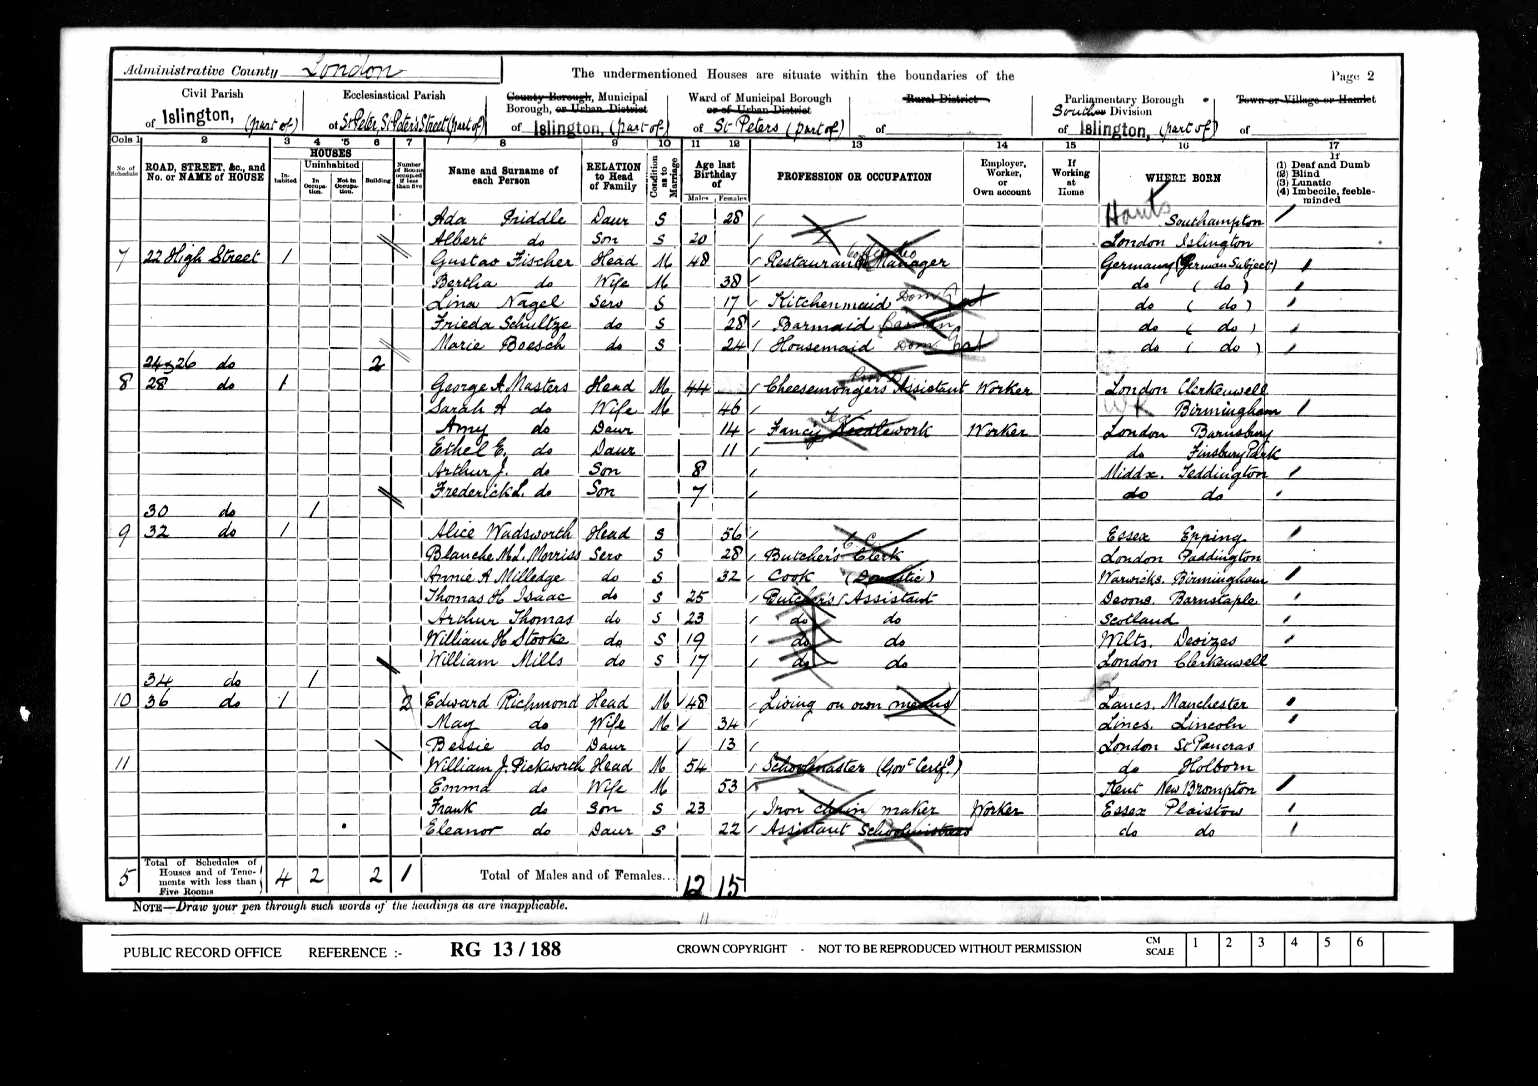 Administrative County London
The undermentioned Houses are situate within the boundaries of the
Page 2
Civil Parish
of Islington, (part of)
Ecclesiastical Parish
of St Peter, St Peter's Street (part of)
County Borough, Municipal
Borough, or Urban District
of Islington, (part of)
Ward of Municipal Borough
or of Urban District
of St Peters (part of)
Rural District
of
Parliamentary Borough
Southern Division
of Islington, (part of)
Town or Village or Hamlet
of
Cols 1 2 3 4 5 6 7 8 9 10 11 12 13 14 15 16 17
No. of Schedule
ROAD, STREET, &c., and No. or NAME of HOUSE
HOUSES
Inhabited
Uninhabited
In Occupation.
Not in Occupation.
Building
Number of Rooms occupied if less than five
Name and Surname of each Person
RELATION to Head of Family
Condition as to Marriage
Age last Birthday of
Males Females
PROFESSION OR OCCUPATION
Employer, Worker, or Own account
If Working at Home
WHERE BORN
If
(1) Deaf and Dumb
(2) Blind
(3) Lunatic
(4) Imbecile, feeble-minded
Ada Priddle Daur S 28 Hants Southampton
Albert do Son S 20 London Islington
7 22 High Street 1 Gustav Fischer Head M 48 Restaurant Manager Germany (German Subject)
Bertha do Wife M 38 do (do)
Lina Nagel Serv S 17 Kitchenmaid Dom do (do)
Frieda Schultze do S 28 Barmaid do (do)
Marie Boesch do S 24 Housemaid Dom do (do)
24 & 26 do 2
8 28 do 1 George A Masters Head M 44 Cheesemongers Assistant Worker London Clerkenwell
Sarah A do Wife M 46 Wk Birmingham
Amy do Daur 14 Fancy Needlework Worker London Barnsbury
Ethel E. do Daur 11 do Finsbury Park
Arthur J. do Son 8 Middx. Teddington
Frederick L. do Son 7 do do
30 do 1
9 32 do 1 Alice Wadsworth Head S 56 Essex Epping
Blanche M. L. Morriss Serv S 28 Butcher's Clerk London Paddington
Annie A Milledge do S 32 Cook (Domestic) Warwicks. Birmingham
Thomas H Isaac do S 25 Butcher's Assistant Devons. Barnstaple
Arthur Thomas do S 23 do do Scotland
William H Stooke do S 19 do do Wilts. Devizes
William Mills do S 17 do do London Clerkenwell
34 do 1
10 36 do 1 2 Edward Richmond Head M 48 Living on own means Lancs. Manchester
May do Wife M 34 Lincs. Lincoln
Bessie do Daur 13 London St Pancras
11 William J. Pickworth Head M 54 Schoolmaster (Govt Certf.) do Holborn
Emma do Wife M 53 Kent New Brompton
Frank do Son S 23 Iron chain maker Worker Essex Plaistow
Eleanor do Daur S 22 Assistant Schoolmistress do do
5 Total of Schedules of Houses and of Tenements with less than Five Rooms 4 2 2 1 Total of Males and of Females... 12 15
NOTE—Draw your pen through such words of the headings as are inapplicable.
11
PUBLIC RECORD OFFICE REFERENCE :- RG 13 / 188 CROWN COPYRIGHT - NOT TO BE REPRODUCED WITHOUT PERMISSION CM SCALE 1 2 3 4 5 6